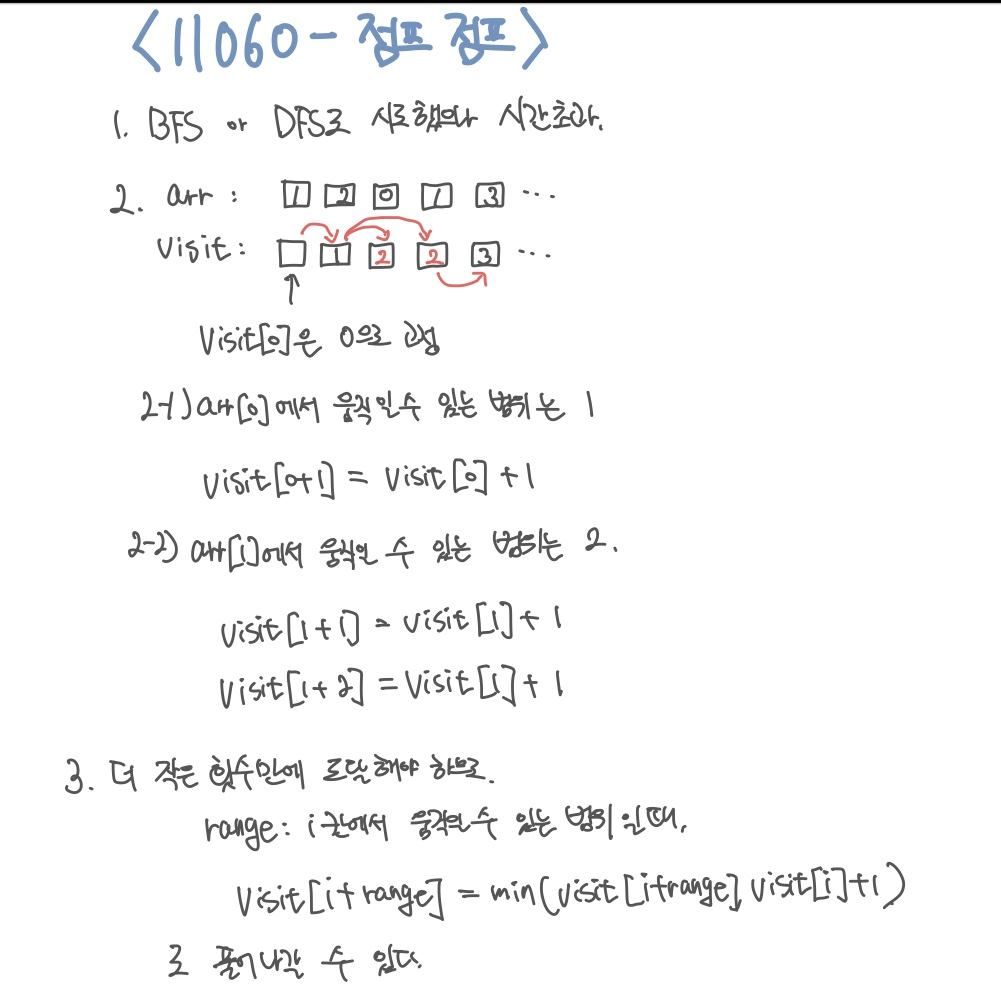 <11060 - 점프 점프>
1. BFS or DFS로 시도했으나 시간초과.
2. arr : 1 2 0 1 3 ...
visit : 1 2 2 3 ...
visit[0]은 0으로 고정
2-1) arr[0]에서 움직일 수 있는 범위는 1
visit[0+1] = visit[0] + 1
2-2) arr[1]에서 움직일 수 있는 범위는 2.
visit[1+1] = visit[1] + 1
visit[1+2] = visit[1] + 1
3. 더 작은 횟수만에 도달해야 하므로.
range : i칸에서 움직일 수 있는 범위 일 때,
visit[i+range] = min(visit[i+range], visit[i]+1)
로 풀어나갈 수 있다.